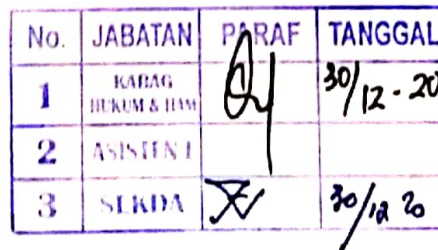 No. JABATAN PARAF TANGGAL
1 KABAG HUKUM & HAM 30/12-20
2 ASISTEN I
3 SEKDA 30/12 20